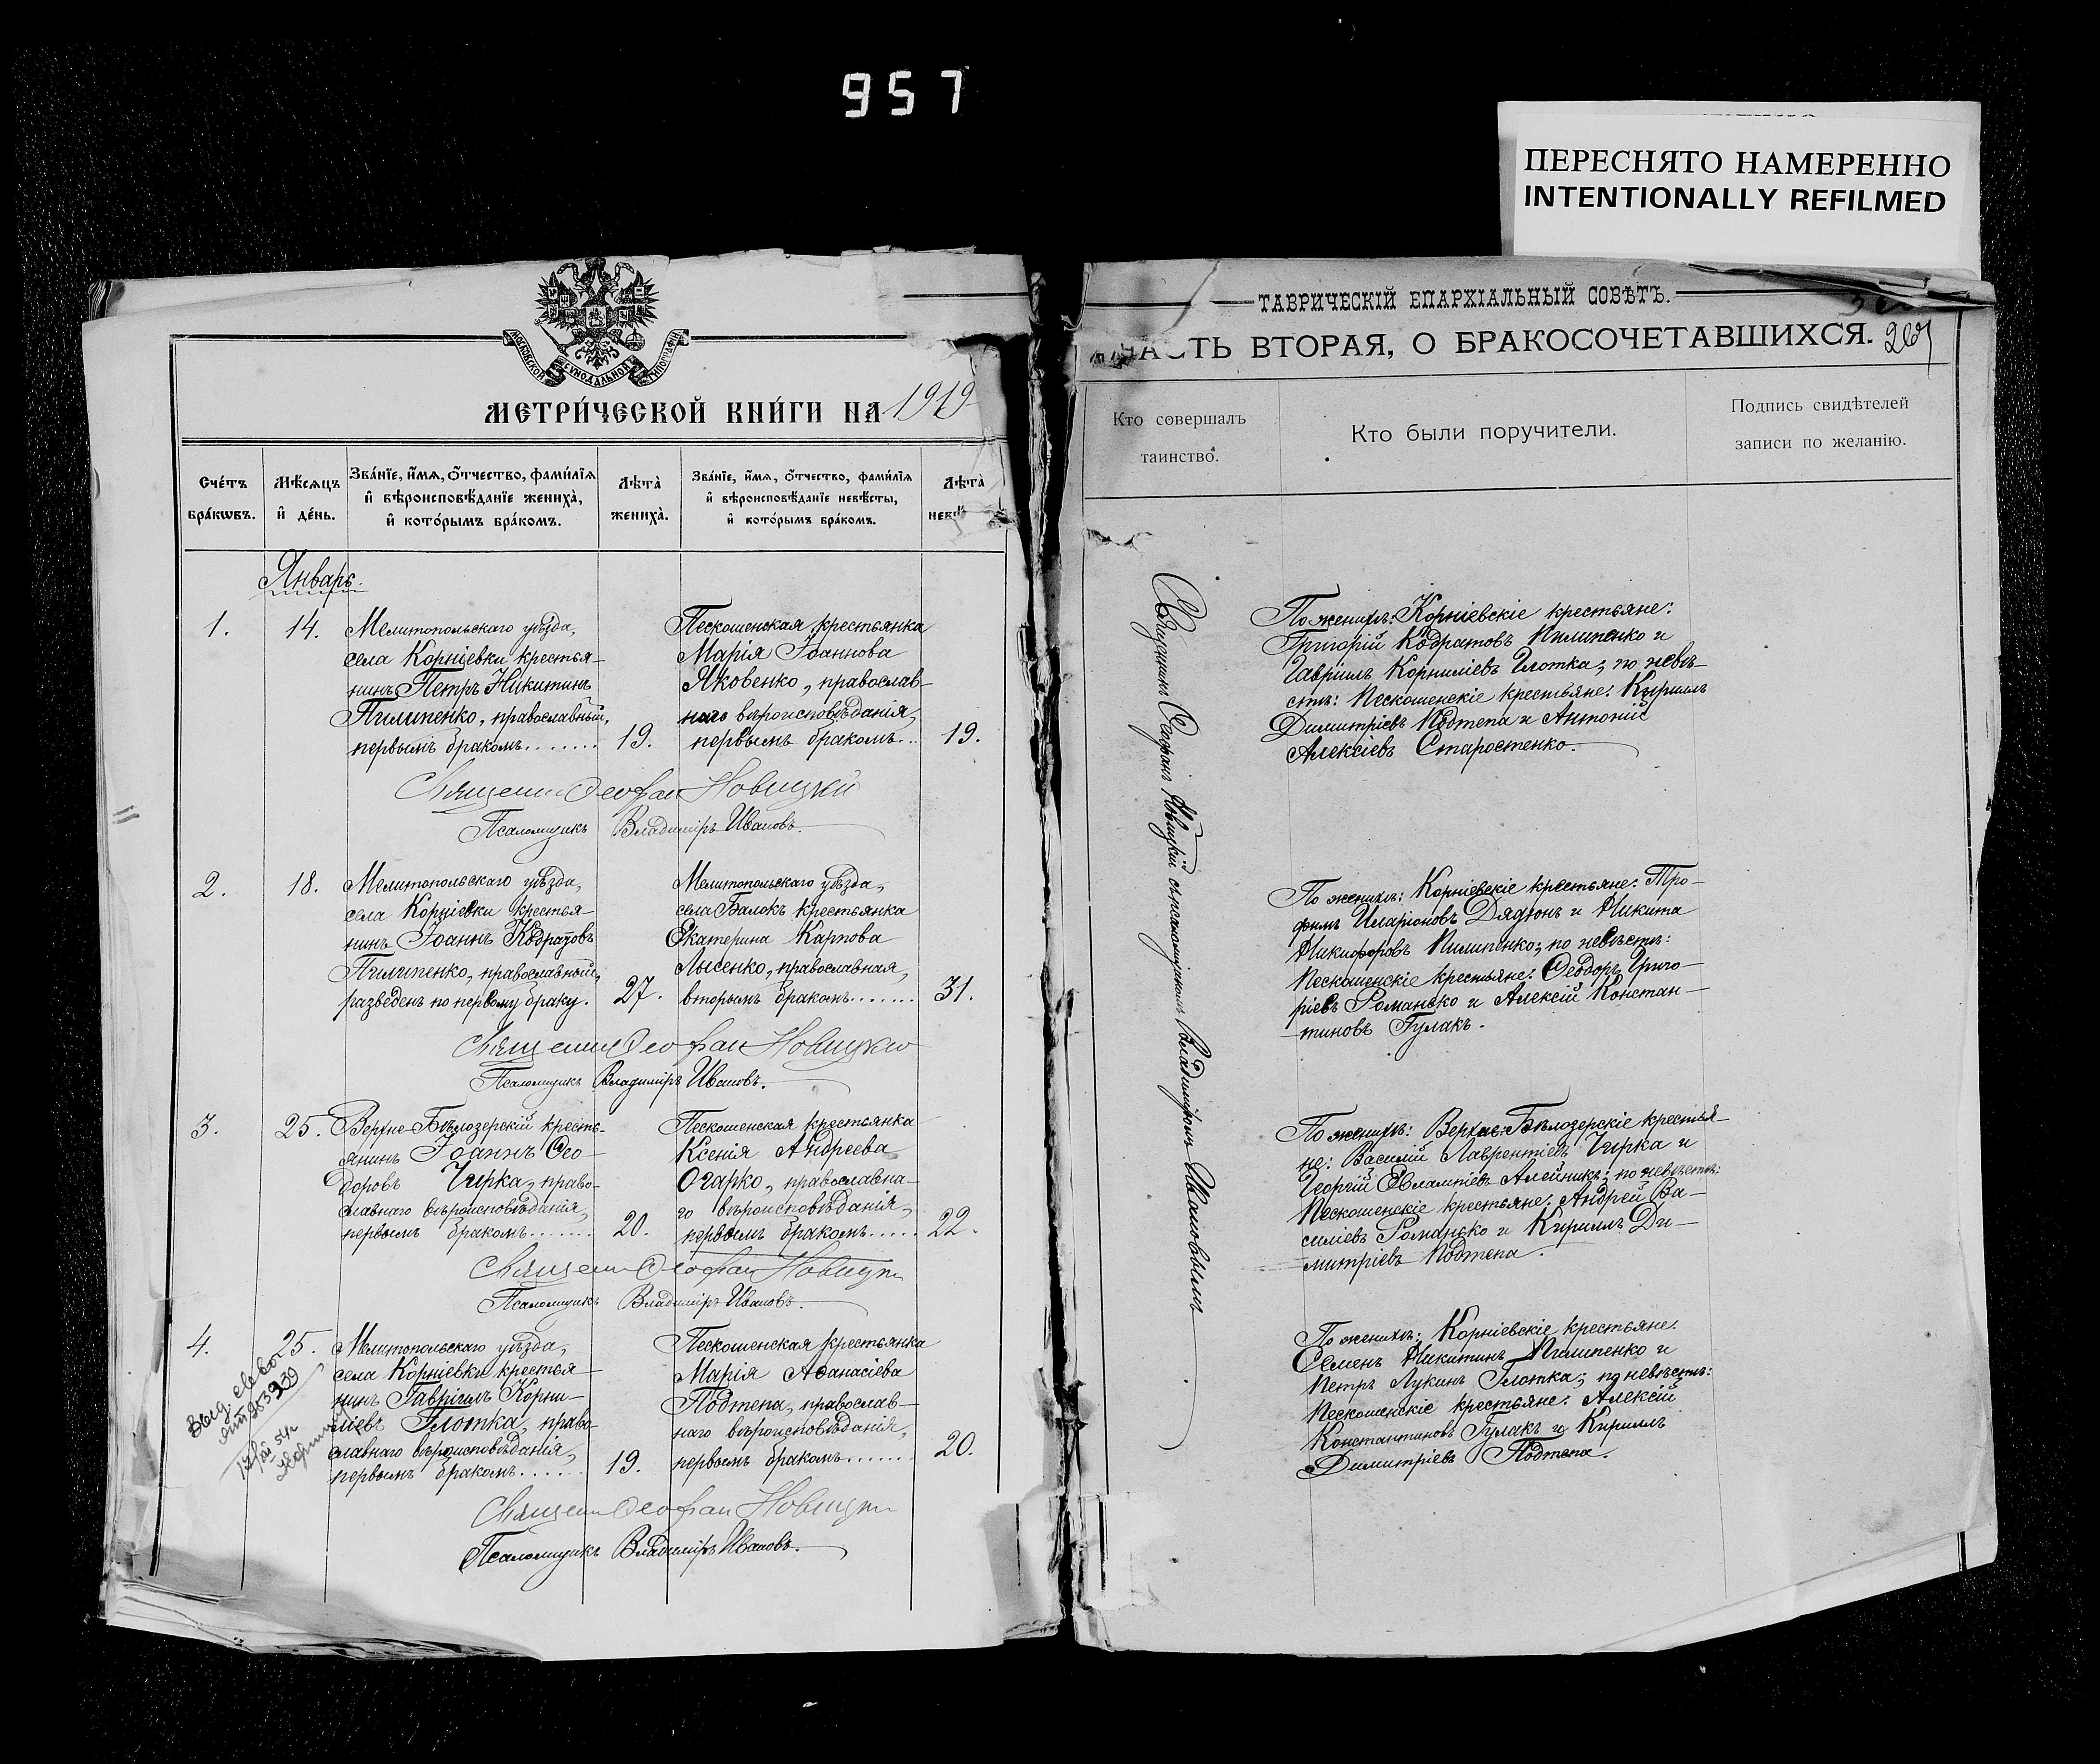 957
ПЕРЕСНЯТО НАМЕРЕННО
INTENTIONALLY REFILMED
МОСКОВСКОЙ СѴНОДАЛЬНОЙ ТИПОГРАФІИ
МЕТРИ́ЧЕСКОЙ КНИ́ГИ НА 1919
Сче́тъ бра́кѡвъ.
Мѣ́сѧцъ и҆ де́нь.
Зва́нїе, и҆́мѧ, ѻ҆́тчество, фами́лїѧ
и҆ вѣроисповѣ́данїе жениха̀,
и҆ кото́рымъ бра́комъ.
Лѣ́та̀ жениха̀.
Зва́нїе, и҆́мѧ, ѻ҆́тчество, фами́лїѧ
и҆ вѣроисповѣ́данїе невѣ́сты,
и҆ кото́рымъ бра́комъ.
Лѣ́та̀
Январь.
1.
14.
Мелитопольскаго уѣзда,
села Корніевки крестья-
нинъ Петръ Никитинъ
Пилипенко, православный,
первымъ бракомъ.......
19.
Пескошенская крестьянка
Марія Іоаннова
Яковенко, православ-
наго вѣроисповѣданія,
первымъ бракомъ..
19.
Священник Феофан Новицкій
Псаломщикъ Владиміръ Ивановъ.
2.
18.
Мелитопольскаго уѣзда,
села Корніевки крестья-
нинъ Іоаннъ Кодратовъ
Пилипенко, православный,
разведенъ по первому браку.
27.
Мелитопольскаго уѣзда,
села Балокъ крестьянка
Екатерина Карпова
Лысенко, православная,
вторымъ бракомъ.......
31.
Священник Феофан Новицкій
Псаломщикъ Владиміръ Ивановъ.
3.
25.
Верхне-Бѣлозерскій кресть-
янинъ Іоаннъ Ѳео-
доровъ Чирка, право-
славнаго вѣроисповѣданія,
первымъ бракомъ.......
20.
Пескошенская крестьянка
Ксенія Андреева
Огарко, православна-
го вѣроисповѣданія,
первымъ бракомъ.....
22.
Священник Феофан Новицкій
Псаломщикъ Владиміръ Ивановъ.
4.
25.
Мелитопольскаго уѣзда,
села Корніевки крестья-
нинъ Гавріилъ Корни-
ліевъ Глотка, право-
славнаго вѣроисповѣданія,
первымъ бракомъ......
19.
Пескошенская крестьянка
Марія Аѳанасіева
Подтепа, православ-
наго вѣроисповѣданія,
первымъ бракомъ.......
20.
Священник Феофан Новицкій
Псаломщикъ Владиміръ Ивановъ.
ТАВРИЧЕСКІЙ ЕПАРХІАЛЬНЫЙ СОВѢТЪ.
ЧАСТЬ ВТОРАЯ, О БРАКОСОЧЕТАВШИХСЯ.
Кто совершалъ
таинство.
Кто были поручители.
Подпись свидѣтелей
записи по желанію.
Священникъ Феофанъ Новицкій съ псаломщикомъ Владиміромъ Ивановымъ
По женихѣ: Корніевскіе крестьяне:
Григорій Кодратовъ Пилипенко и
Гавріилъ Корниліевъ Глотка; по невѣ-
стѣ: Пескошенскіе крестьяне: Кириллъ
Димитріевъ Подтепа и Антоній
Алексіевъ Старостенко.
По женихѣ: Корніевскіе крестьяне: Тро-
фимъ Иларіоновъ Дядюнъ и Никита
Никифоровъ Пилипенко; по невѣстѣ:
Пескошенскіе крестьяне: Ѳеодоръ Григо-
ріевъ Романько и Алексій Констан-
тиновъ Гулакъ.
По женихѣ: Верхне-Бѣлозерскіе крестья-
не: Василій Лаврентіевъ Чирка и
Георгій Евлампіевъ Алейникъ; по невѣстѣ:
Пескошенскіе крестьяне: Андрей Ва-
силіевъ Романько и Кириллъ Ди-
митріевъ Подтепа.
По женихѣ: Корніевскіе крестьяне:
Семенъ Никитинъ Пилипенко и
Петръ Лукинъ Глотка; по невѣстѣ:
Пескошенскіе крестьяне: Алексій
Константиновъ Гулакъ и Кириллъ
Димитріевъ Подтепа.